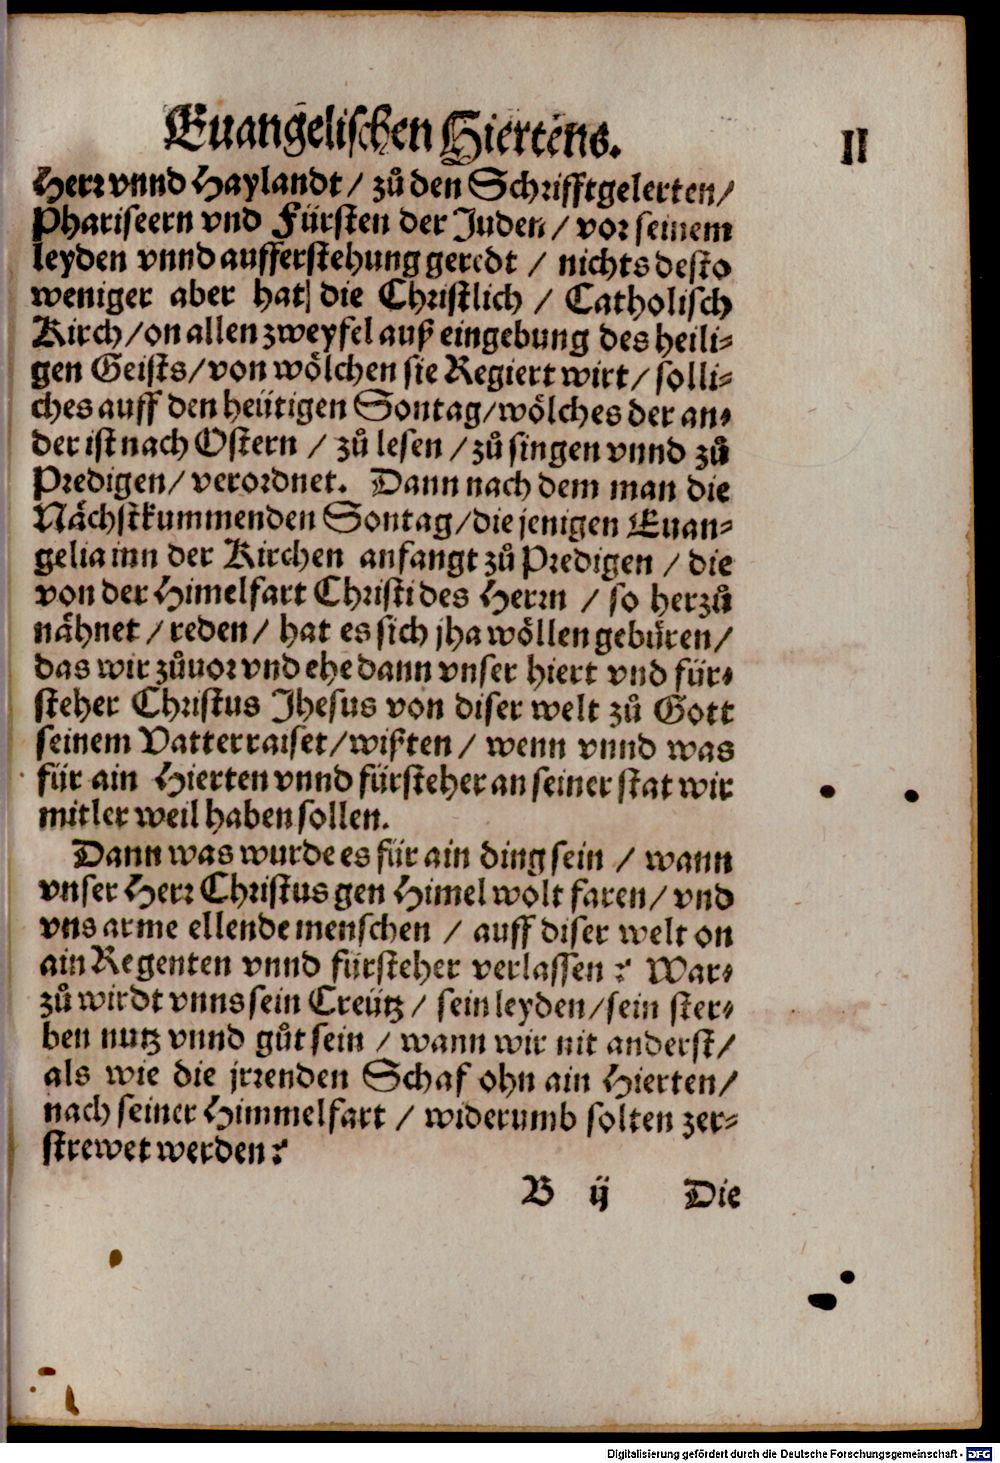 Euangelischen Hiertens. II
Herr vnnd Haylandt / zů den Schrifftgelerten /
Phariseern vnd Fürsten der Juden / vor seinem
leyden vnnd aufferstehung geredt / nichts desto
weniger aber hat die Christlich / Catholisch
Kirch / on allen zweyfel auß eingebung des heili⸗
gen Geists / von wölchen sie Regiert wirt / solli⸗
ches auff den heütigen Sontag / wölches der an⸗
der ist nach Ostern / zů lesen / zů singen vnnd zů
Predigen / verordnet. Dann nach dem man die
Nächstkummenden Sontag / die jenigen Euan⸗
gelia inn der Kirchen anfangt zů Predigen / die
von der Himelfart Christi des Herrn / so herzů
nähnet / reden / hat es sich jha wöllen gebüren /
das wir zůuor vnd ehe dann vnser hiert vnd für⸗
steher Christus Jhesus von diser welt zů Gott
seinem Vatter raiset / wißten / wenn vnnd was
für ain Hierten vnnd fürsteher an seiner stat wir
mitler weil haben sollen.
Dann was wurde es für ain ding sein / wann
vnser Herr Christus gen Himel wolt faren / vnd
vns arme ellende menschen / auff diser welt on
ain Regenten vnnd fürsteher verlassen? War⸗
zů wirdt vnns sein Creütz / sein leyden / sein ster⸗
ben nutz vnnd gůt sein / wann wir nit anderst /
als wie die jrrenden Schaf ohn ain Hierten /
nach seiner Himmelfart / widerumb solten zer⸗
strewet werden?
B ij Die
Digitalisierung gefördert durch die Deutsche Forschungsgemeinschaft - DFG